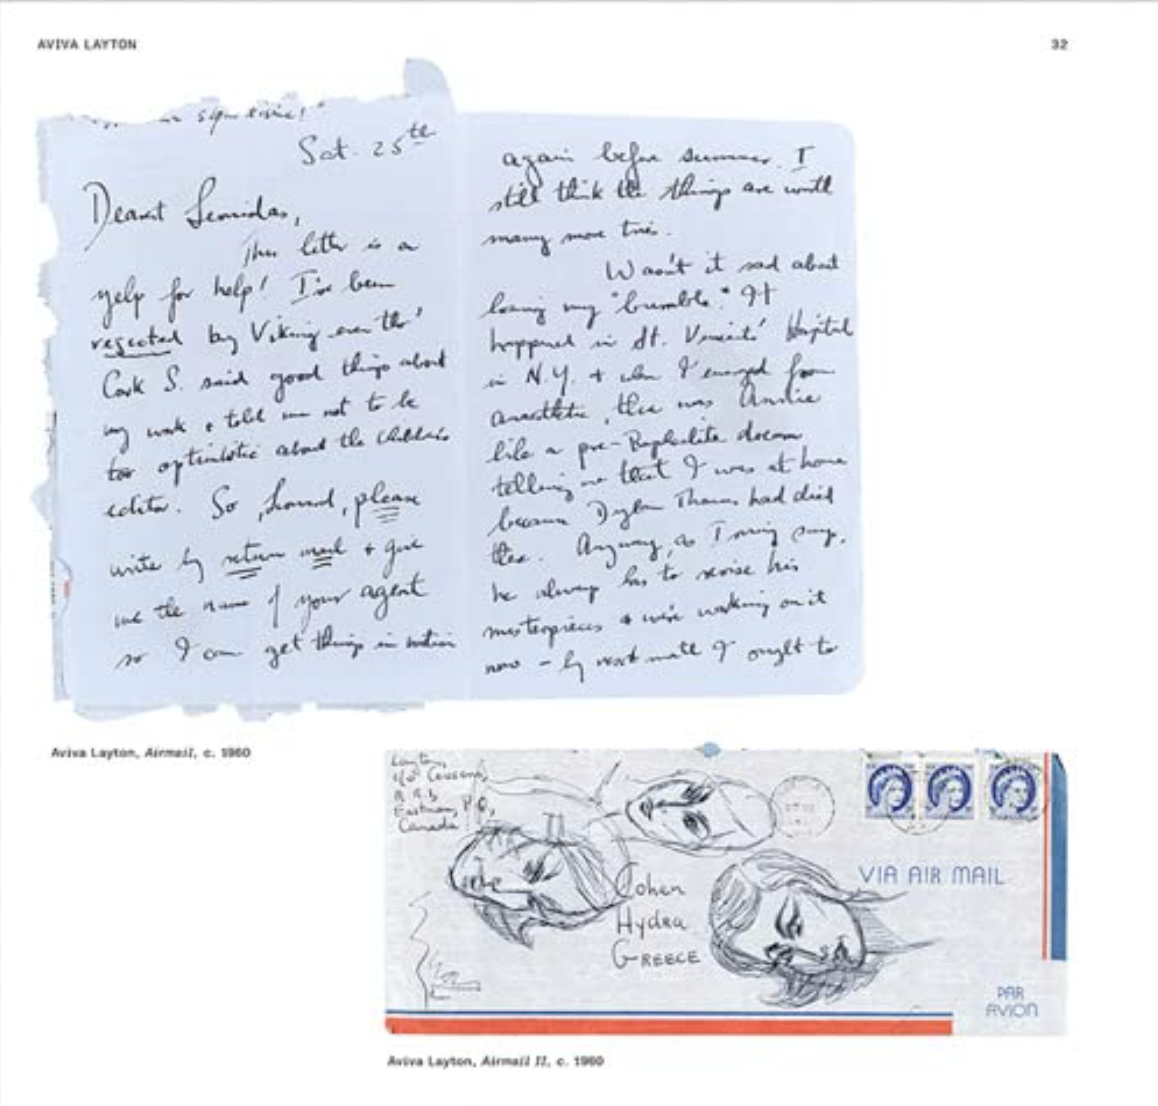 AVIVA LAYTON
32
sign
Sat. 25th
Dearest Leonidas,
This letter is a
yelp for help! I've been
rejected by Viking even tho'
Cork S. said good things about
my work + told me not to be
too optimistic about the children's
editor. So, Leonard, please
write by return mail + give
me the name of your agent
so I can get things in motion
again before summer. I
still think the things are worth
many more tries.
Wasn't it sad about
losing my "bumble." It
happened in St. Vincents' Hospital
in N.Y. + when I emerged from
anaesthetic, there was
like a pre-Raphelite dream
telling me that I was at home
because Dylan Thomas had died
there. Anyway, as I say,
he always has to revise his
masterpieces + we're working on it
now - by next month I ought to
Aviva Layton, Airmail, c. 1960
Layton,
c/o
R.R.
Eastman, P.Q,
Canada
Cohen
Hydra
GREECE
VIA AIR MAIL
PAR
AVION
Aviva Layton, Airmail II, c. 1960